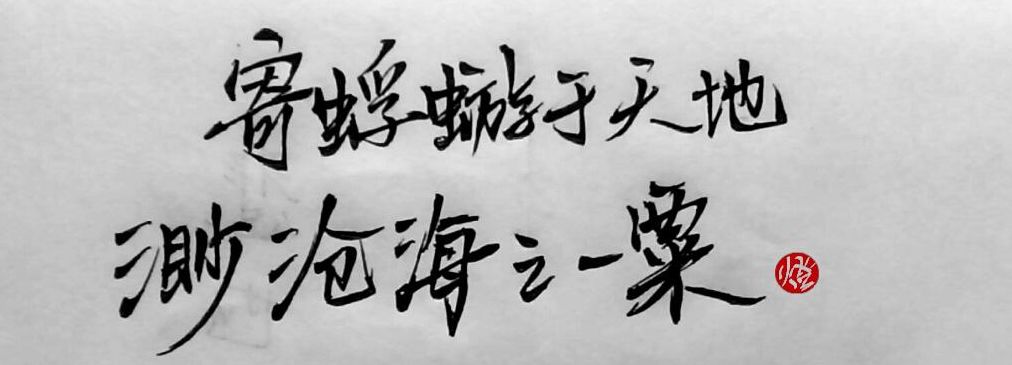 寄蜉蝣于天地
渺沧海之一粟